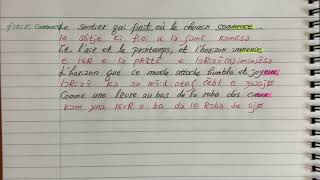 finir. commence Le sentier qui finit où le chemin commence
lə sɑ̃tje ki fini u lə ʃəmɛ̃ kɔmɑ̃s
Et l'air et le printemps, et l'horizon immense
e lɛR e lə pRɛ̃tɑ̃ e lɔRizɔ̃
L'horizon que ce monde attache humble et joyeux
lɔRizɔ̃ kə sə mɔ̃d ataʃ
Comme une lèvre au bas de la robe des cieux
kɔm yn lɛvR o ba də la Rɔbə de sjø